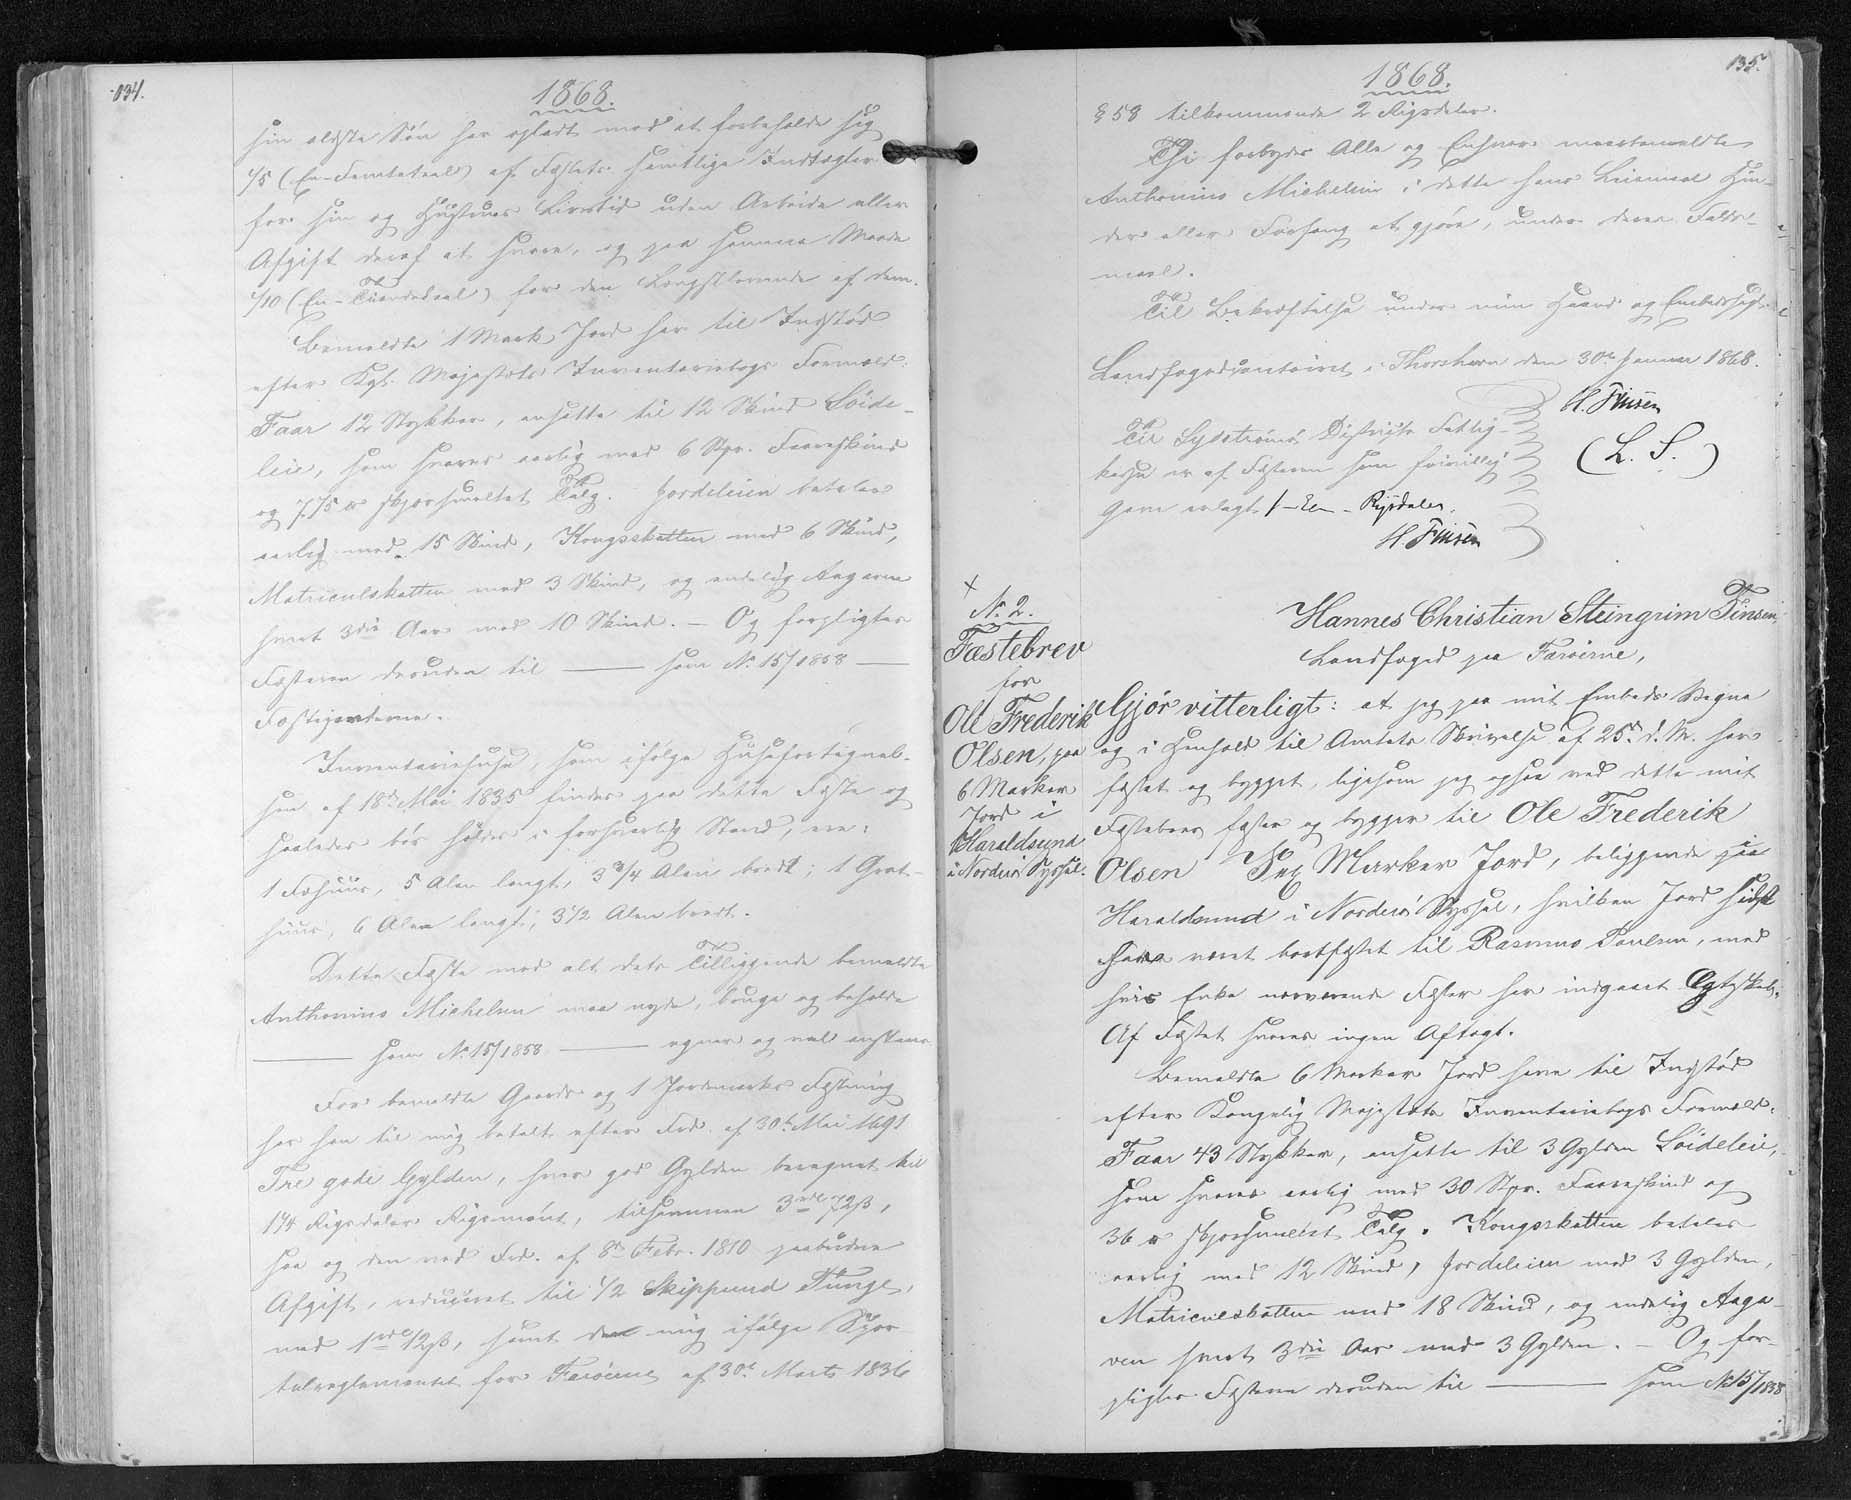 134.
1868.
sin ældste Søn har opladt mod at forbeholde sig
1/5 (En-Femtedeel) af Fæstets samtlige Indtægter
for sin og Hustrues Livstid uden Arbeide eller
Afgift deraf at svare, og paa samme Maade
1/10 (En-Tiendedeel) for den Længstlevende af dem.
Bemeldte 1 Mark Jord har til Indstød
efter Kgl. Majestæts Inventariebogs Formeld:
Faar 12 Stykker, ansatte til 12 Skind Søide-
leie, som svares aarlig med 6 Spr. Faareskind
og 7 1/5 ℔ skjørsmeltet Talg. Jordeleien betales
aarlig med 15 Skind, Kongsskatten med 6 Skind,
Matriculskatten med 3 Skind, og endelig Aagaven
hvert 3die Aar med 10 Skind. – Og forpligtes
Fæsteren desuden til ——— som No 15/1858 ———
Fæstegaarderne.
Inventariehuse, som ifølge Huusfortegnel-
sen af 18de Mai 1835 findes paa dette Fæste og
saaledes bør holdes i forsvarlig Stand, ere:
1 Fæhuus, 5 Alen langt, 3 3/4 Alen bredt; 1 Grot-
huus, 6 Alen langt, 3 1/2 Alen bredt.
Dette Fæste med alt dets Tilliggende bemeldte
Anthonius Michelsen maa nyde, bruge og beholde
——— som No 15/1858 ——— egner og vel anstaaer.
For bemeldte Gaards og 1 Jordmarks Fæstning
har han til mig betalt efter Frd. af 30te Mai 1691
Tre gode Gylden, hver god Gylden beregnet til
1 1/4 Rigsdaler Rigsmønt, tilsammen 3 rdl 72 β,
saa og den ved Frd. af 8de Febr. 1810 paabudne
Afgift, reduceret til 1/2 Skippund Tunge,
med 1 rdl 12 β, samt den mig ifølge Spor-
telreglementet for Færøerne af 30te Marts 1836
135.
1868.
§ 58 tilkommende 2 Rigsdaler.
Thi forbydes Alle og Enhver meerbemeldte
Anthonius Michelsen i dette hans Leiemaal Hin-
der eller Forfang at gjøre, under deres Falds-
maal.
Til Bekræftelse under min Haand og Embedssegl.
Landfogedcontoiret i Thorshavn den 30te Januar 1868.
H. Finsen
(L. S.)
Til Sydstrømø Districts Fattig-
kasse er af Fæsteren som frivillig
Gave erlagt 1 – Een – Rigsdaler.
H. Finsen
×
No 2.
Fæstebrev
for
Ole Frederik
Olsen, paa
6 Marker
Jord i
Haraldsund
i Norderø Syssel.
Hannes Christian Steingrim Finsen,
Landfoged paa Færøerne,
Gjør vitterligt: at jeg paa mit Embeds Vegne
og i Henhold til Amtets Skrivelse af 25de d. M. har
fæstet og bygget, ligesom jeg ogsaa ved dette mit
Fæstebrev fæster og bygger til Ole Frederik
Olsen Sex Marker Jord, beliggende paa
Haraldsund i Norderø Syssel, hvilken Jord sidst
have været bortfæstet til Rasmus Poulsen, med
hvis Enke nærværende Fæster har indgaaet Egteskab.
Af Fæstet svares ingen Aftægt.
Bemeldte 6 Marker Jord have til Indstød
efter Kongelig Majestæts Inventariebogs Formeld:
Faar 43 Stykker, ansatte til 3 Gylden Søideleie,
som svares aarlig med 30 Spr. Faareskind og
36 ℔ skjørsmeltet Talg. Kongsskatten betales
aarlig med 12 Skind, Jordeleien med 3 Gylden,
Matriculskatten med 18 Skind, og endelig Aaga-
ven hvert 3die Aar med 3 Gylden. – Og for-
pligtes Fæsteren desuden til ——— som No 15/1858